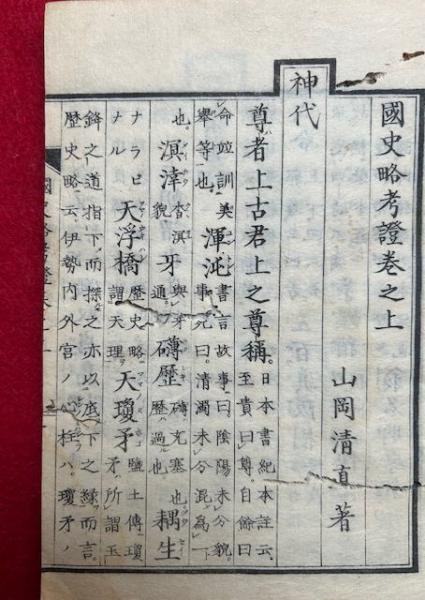 國史略考證卷之上
山岡清直 著
神代
尊者上古君上之尊稱 日本書紀本註云
至貴曰尊自餘曰
命竝訓美
擧等也 渾沌 書言故事曰陰陽未分貌
事兄曰清濁未分混爲一下
也 溟涬 杳溟
貌 牙 與芽
通 礴歷 礴充塞也
歷過也 耦生
ナラビ
ナル 天浮橋 歷史略
謂天理 天瓊矛 鹽土傳瓊
矛所謂玉
鋒之道指下而探之亦以底下之緣而言
歷史略云伊勢内外宮ノ心柱ハ瓊矛ノ
國史略考證卷之